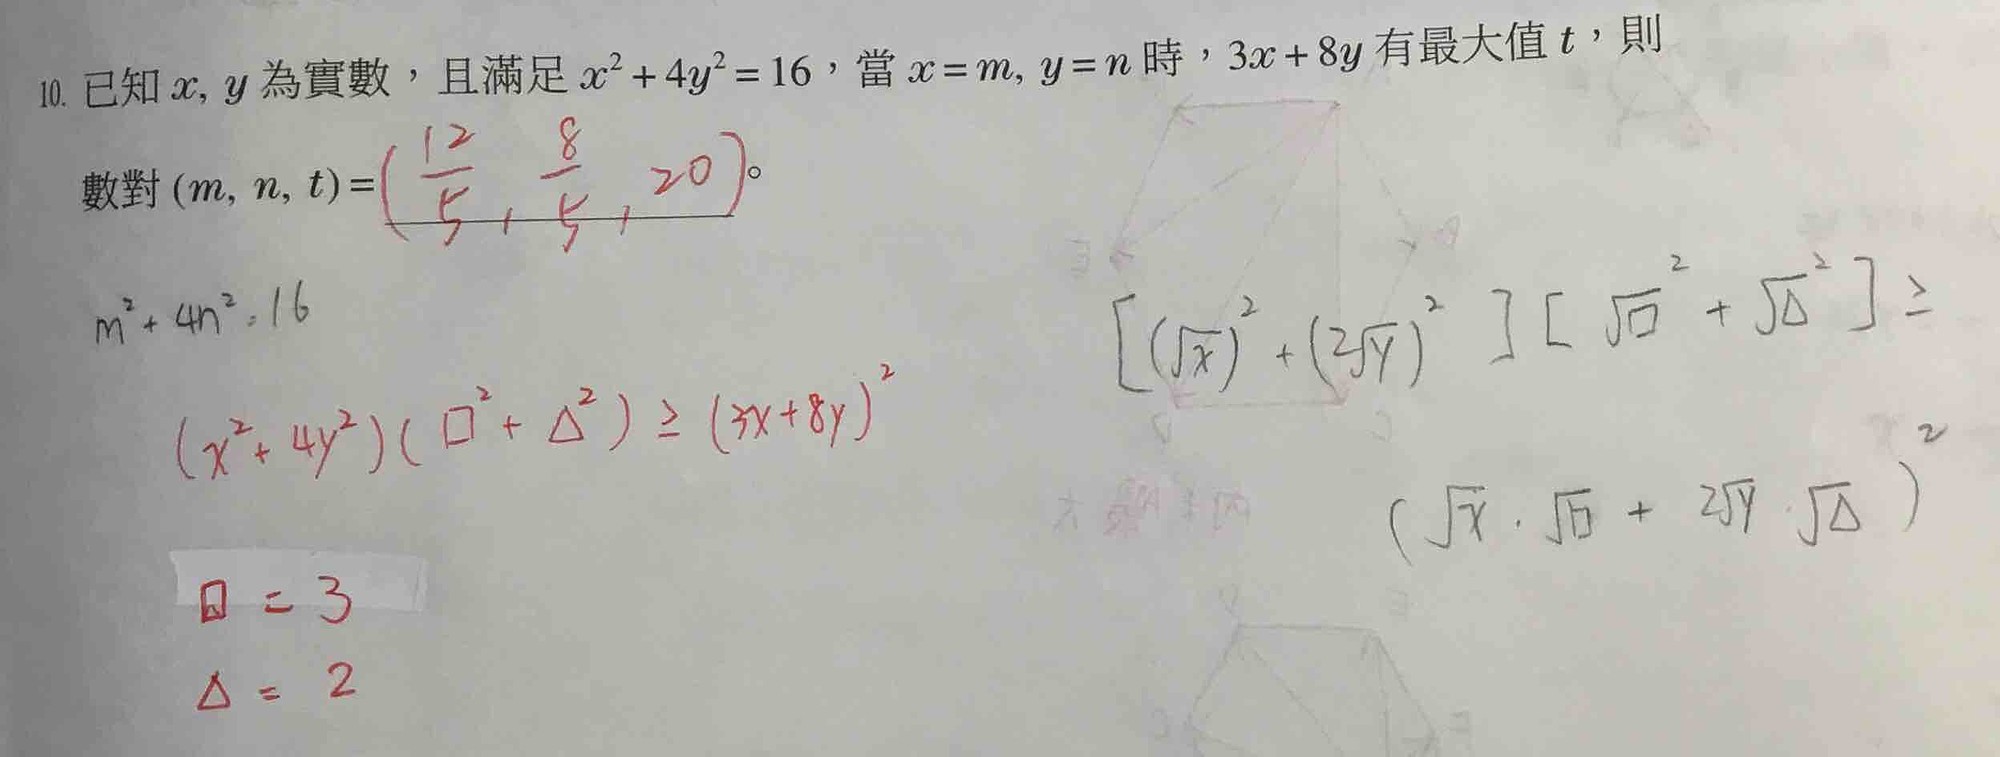 10. 已知 x, y 為實數，且滿足 x² + 4y² = 16，當 x = m, y = n 時，3x + 8y 有最大值 t，則
數對 (m, n, t) = (12/5, 8/5, 20)。
m² + 4n² = 16
(x² + 4y²)(□² + △²) ≥ (3x + 8y)²
□ = 3
△ = 2
[(√x)² + (2√y)²][√□² + √△²] ≥
(√x · √□ + 2√y · √△)²